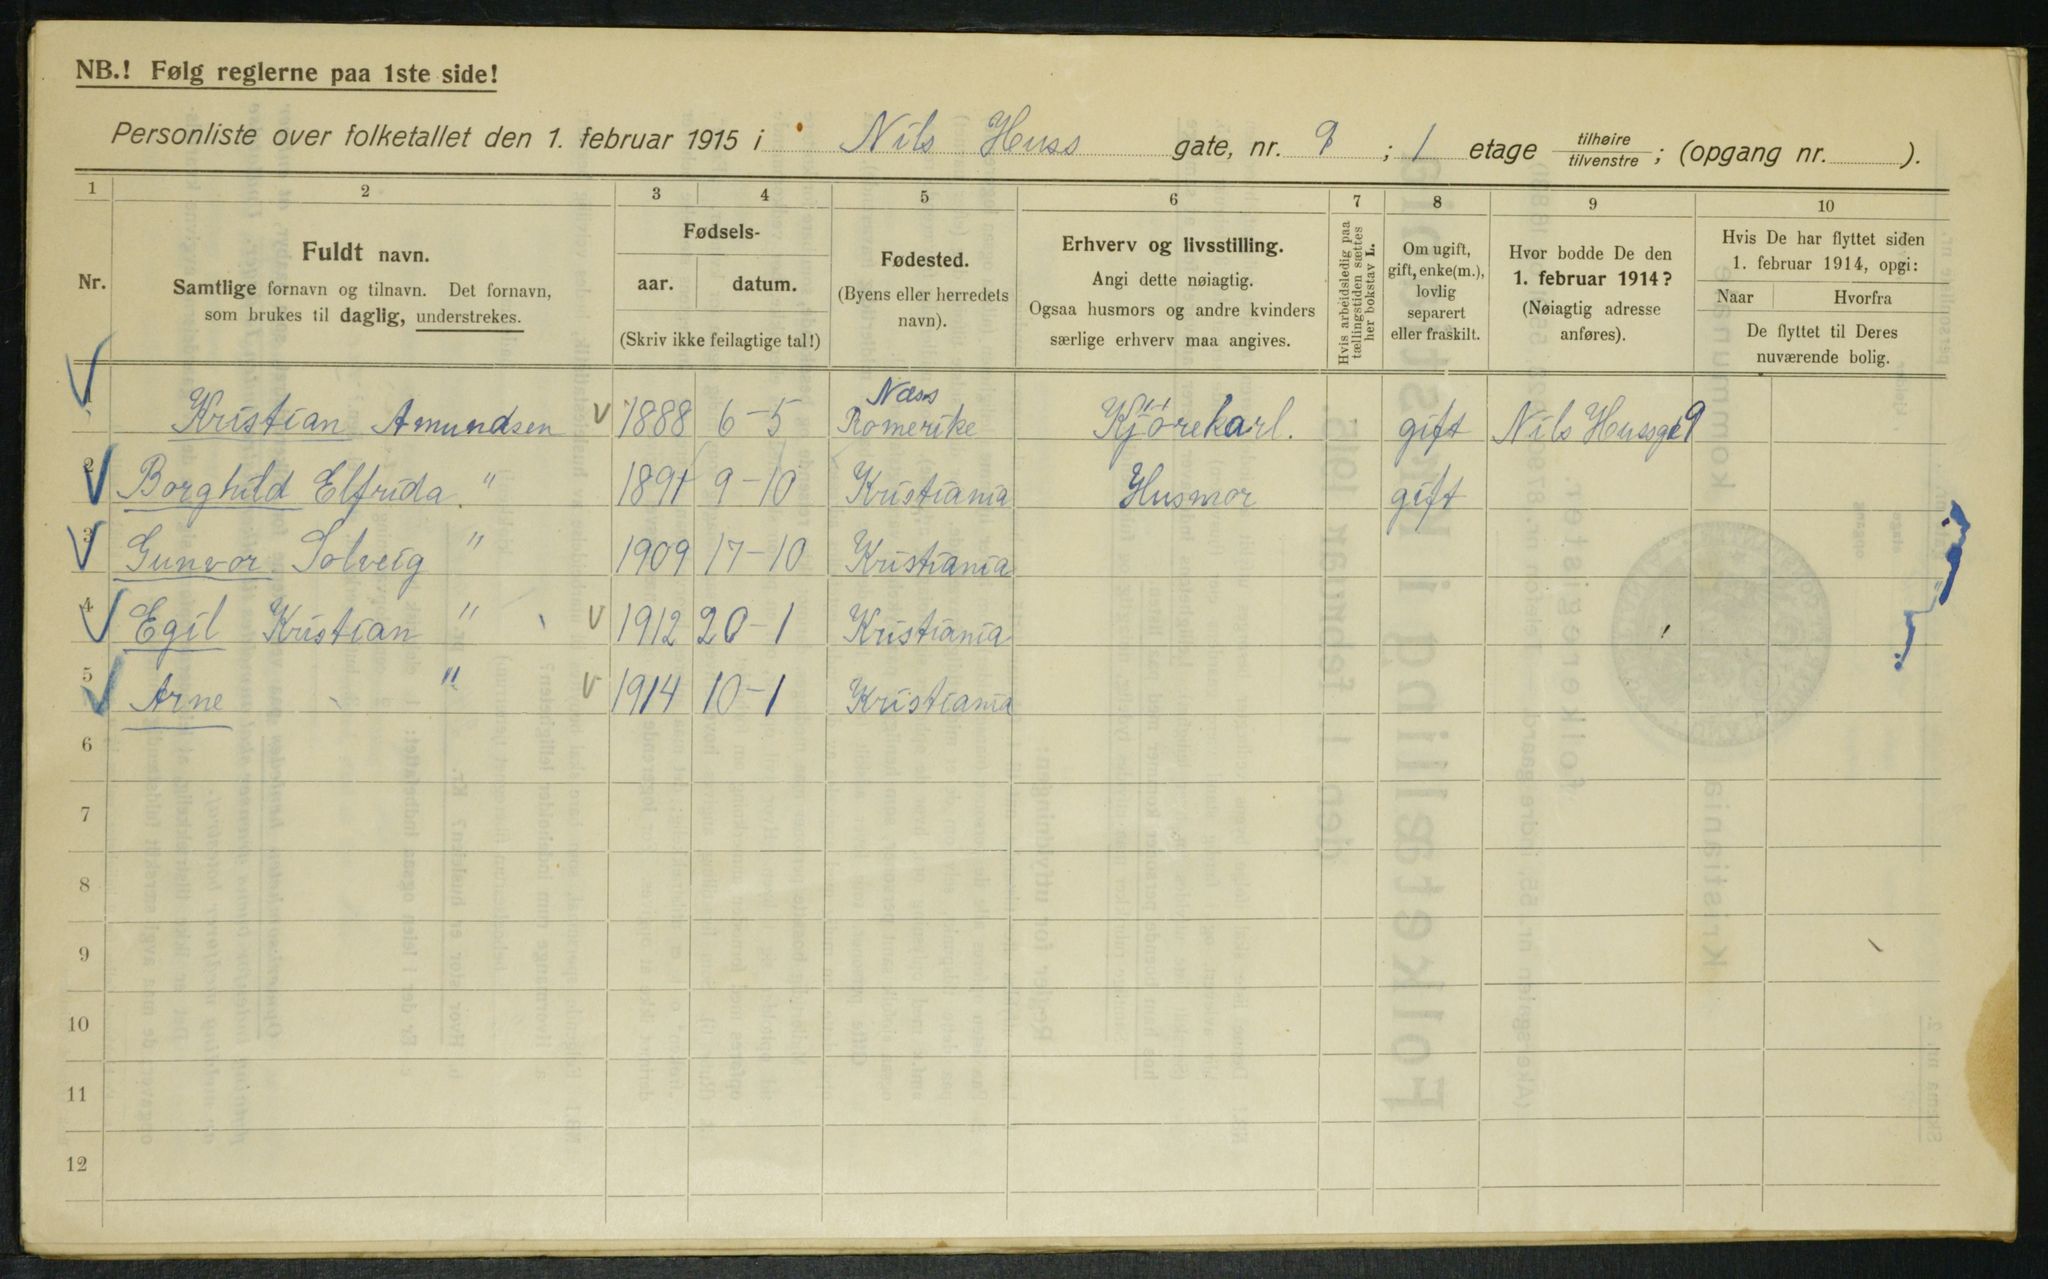 NB.! Følg reglerne paa 1ste side!
Personliste over folketallet den 1. februar 1915 i Nils Huss gate, nr. 9 ; 1 etage tilhøire / tilvenstre ; (opgang nr. ).
1 2 3 4 5 6 7 8 9 10
Nr.
Fuldt navn.
Samtlige fornavn og tilnavn. Det fornavn,
som brukes til daglig, understrekes.
Fødsels-
aar. datum.
(Skriv ikke feilagtige tal!)
Fødested.
(Byens eller herredets
navn).
Erhverv og livsstilling.
Angi dette nøiagtig.
Ogsaa husmors og andre kvinders
særlige erhverv maa angives.
Hvis arbeidsledig paa
tællingstiden sættes
her bokstav L.
Om ugift,
gift, enke(m.),
lovlig
separert
eller fraskilt.
Hvor bodde De den
1. februar 1914?
(Nøiagtig adresse
anføres).
Hvis De har flyttet siden
1. februar 1914, opgi:
Naar Hvorfra
De flyttet til Deres
nuværende bolig.
Næss
1 Kristian Amundsen 1888 6-5 Romerike Kjørekarl. gift Nils Hussgt 9
2 Borghild Elfrida " 1891 9-10 Kristiania Husmor gift
3 Gunvor Solveig " 1909 17-10 Kristiania
4 Egil Kristian " 1912 20-1 Kristiania
5 Arne " 1914 10-1 Kristiania
6
7
8
9
10
11
12